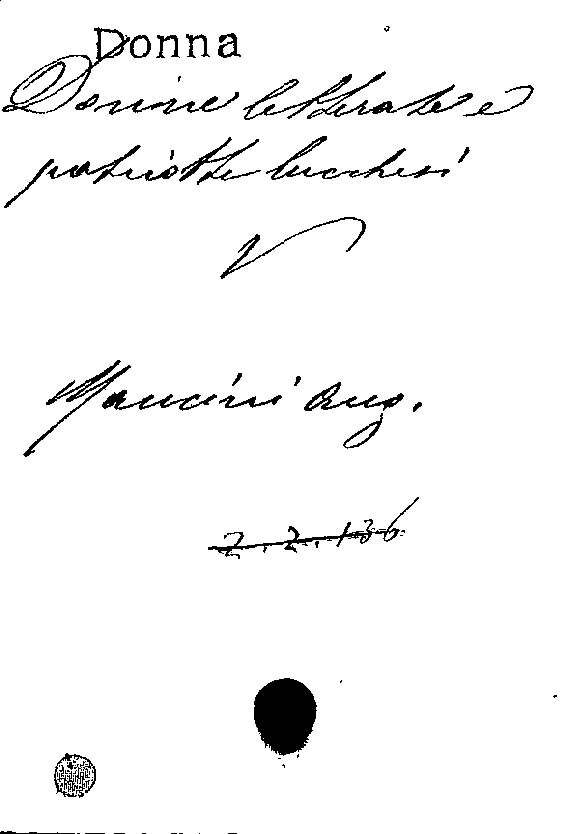 Donna
Donne letterate e
patriotte lucchesi
V
Mancini Aug.
2.2.136